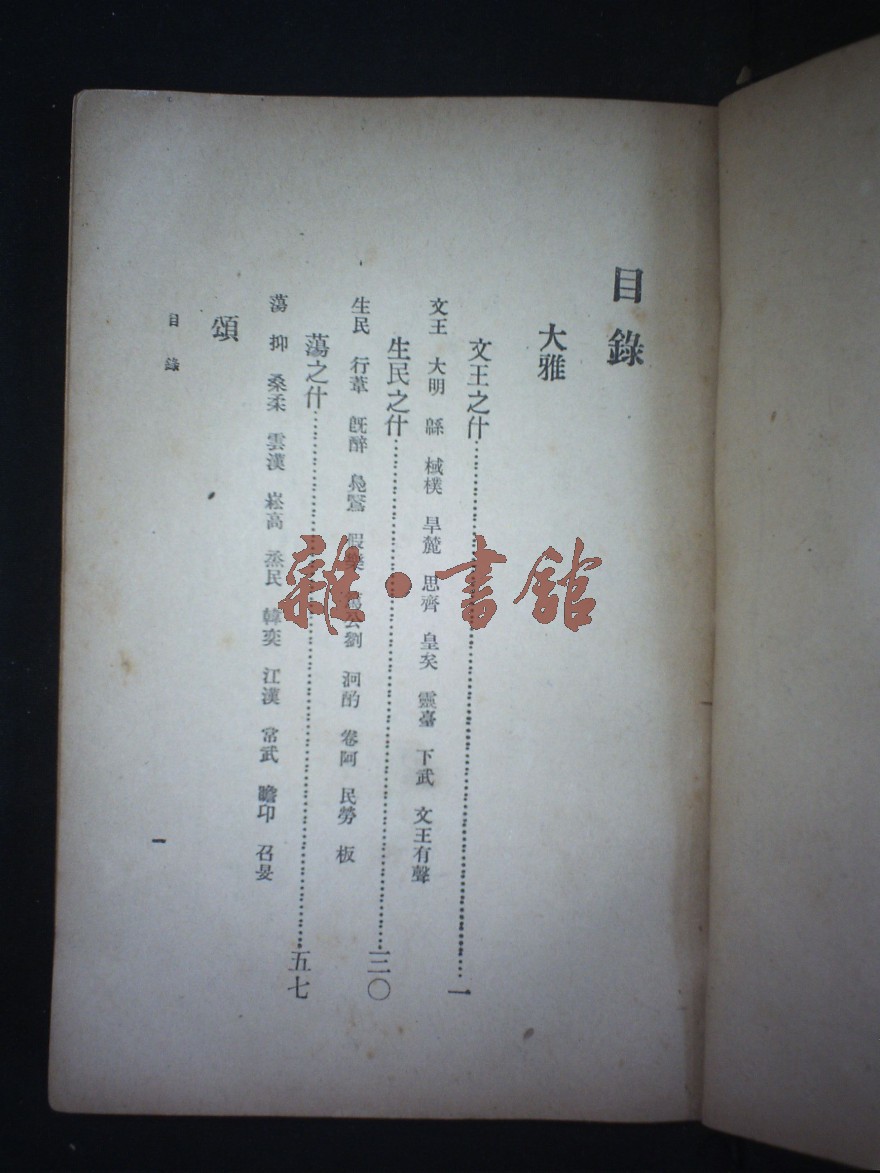 目錄
大雅
文王之什……………一
文王 大明 緜 棫樸 旱麓 思齊 皇矣 靈臺 下武 文王有聲
生民之什……………三〇
生民 行葦 旣醉 鳧鷖 假樂 公劉 泂酌 卷阿 民勞 板
蕩之什……………五七
蕩 抑 桑柔 雲漢 崧高 烝民 韓奕 江漢 常武 瞻卬 召旻
頌
目錄
一
雜·書館